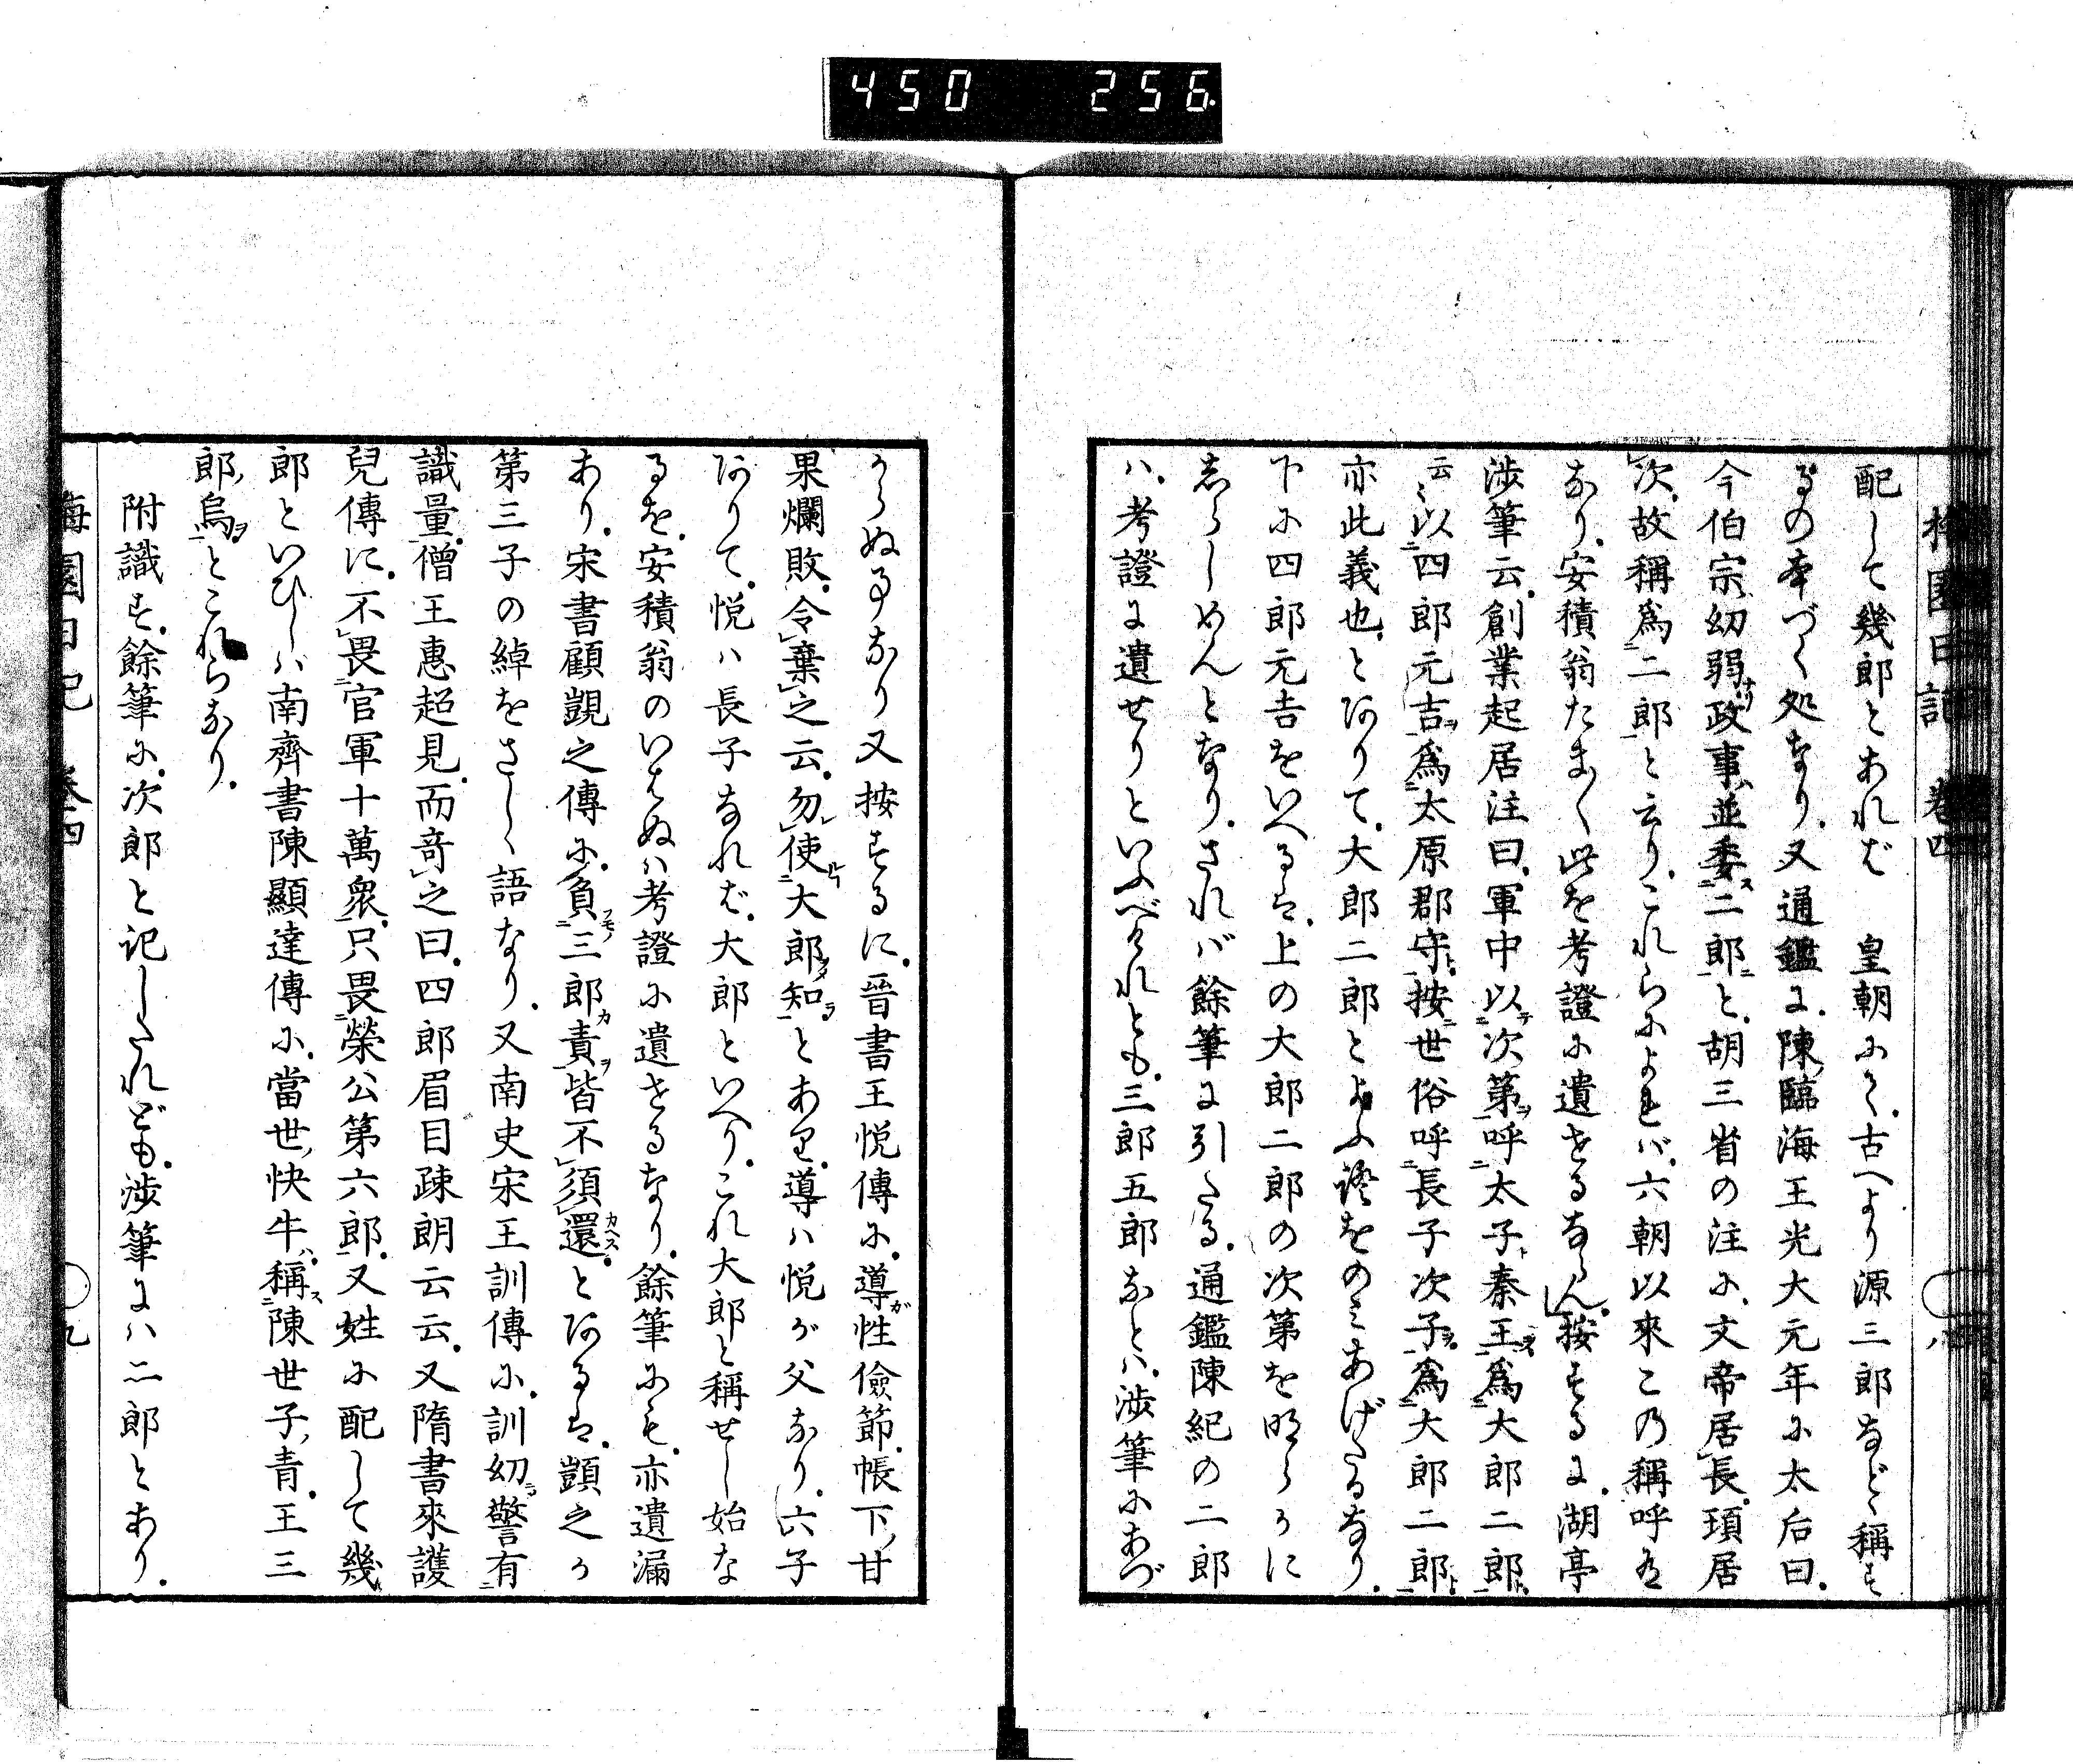 450 256
梅園日記 卷四 八
配して幾郎とあれば 皇朝にも古へより源三郎などゝ稱す
るの本づく処なり又通鑑に陳臨海王光大元年に太后曰
今伯宗幼弱政事並委二郎と胡三省の注に文帝居長頊居
次故稱爲二郎と云りこれらによれバ六朝以來この稱呼有
なり安積翁たま〱此を考證に遺せるならん按するに湖亭
渉筆云創業起居注曰軍中以次第呼太子秦王爲大郎二郎
云〻以四郎元吉爲太原郡守按世俗呼長子次子爲大郎二郎
亦此義也とありて大郎二郎とよふ證をのミあげたるなり
下に四郎元吉をいへるは上の大郎二郎の次第を明らかに
志らしめんとなりされバ餘筆に引たる通鑑陳紀の二郎
ハ考證に遺せりといふべけれとも三郎五郎なとハ渉筆にあづ
からぬ事なり又按するに晉書王悦傳に導性儉節帳下甘
果爛敗令棄之云勿使大郎知とあり導ハ悦が父なり六子
ありて悦ハ長子なれば大郎といへりこれ大郎と稱せし始な
るを安積翁のいはぬハ考證に遺せるなり餘筆にも亦遺漏
あり宋書顧覬之傳に負三郎責皆不須還とあるは顗之か
第三子の綽をさしゝ語なり又南史宋王訓傳に訓幼警有
識量僧王惠超見而竒之曰四郎眉目疎朗云云又隋書來護
兒傳に不畏官軍十萬衆只畏榮公第六郎又姓に配して幾
郎といひしハ南齊書陳顯達傳に當世快牛稱陳世子青王三
郎烏とこれらなり
附識す餘筆に次郎と記したれども渉筆にハ二郎とあり
梅園日記 卷四 九